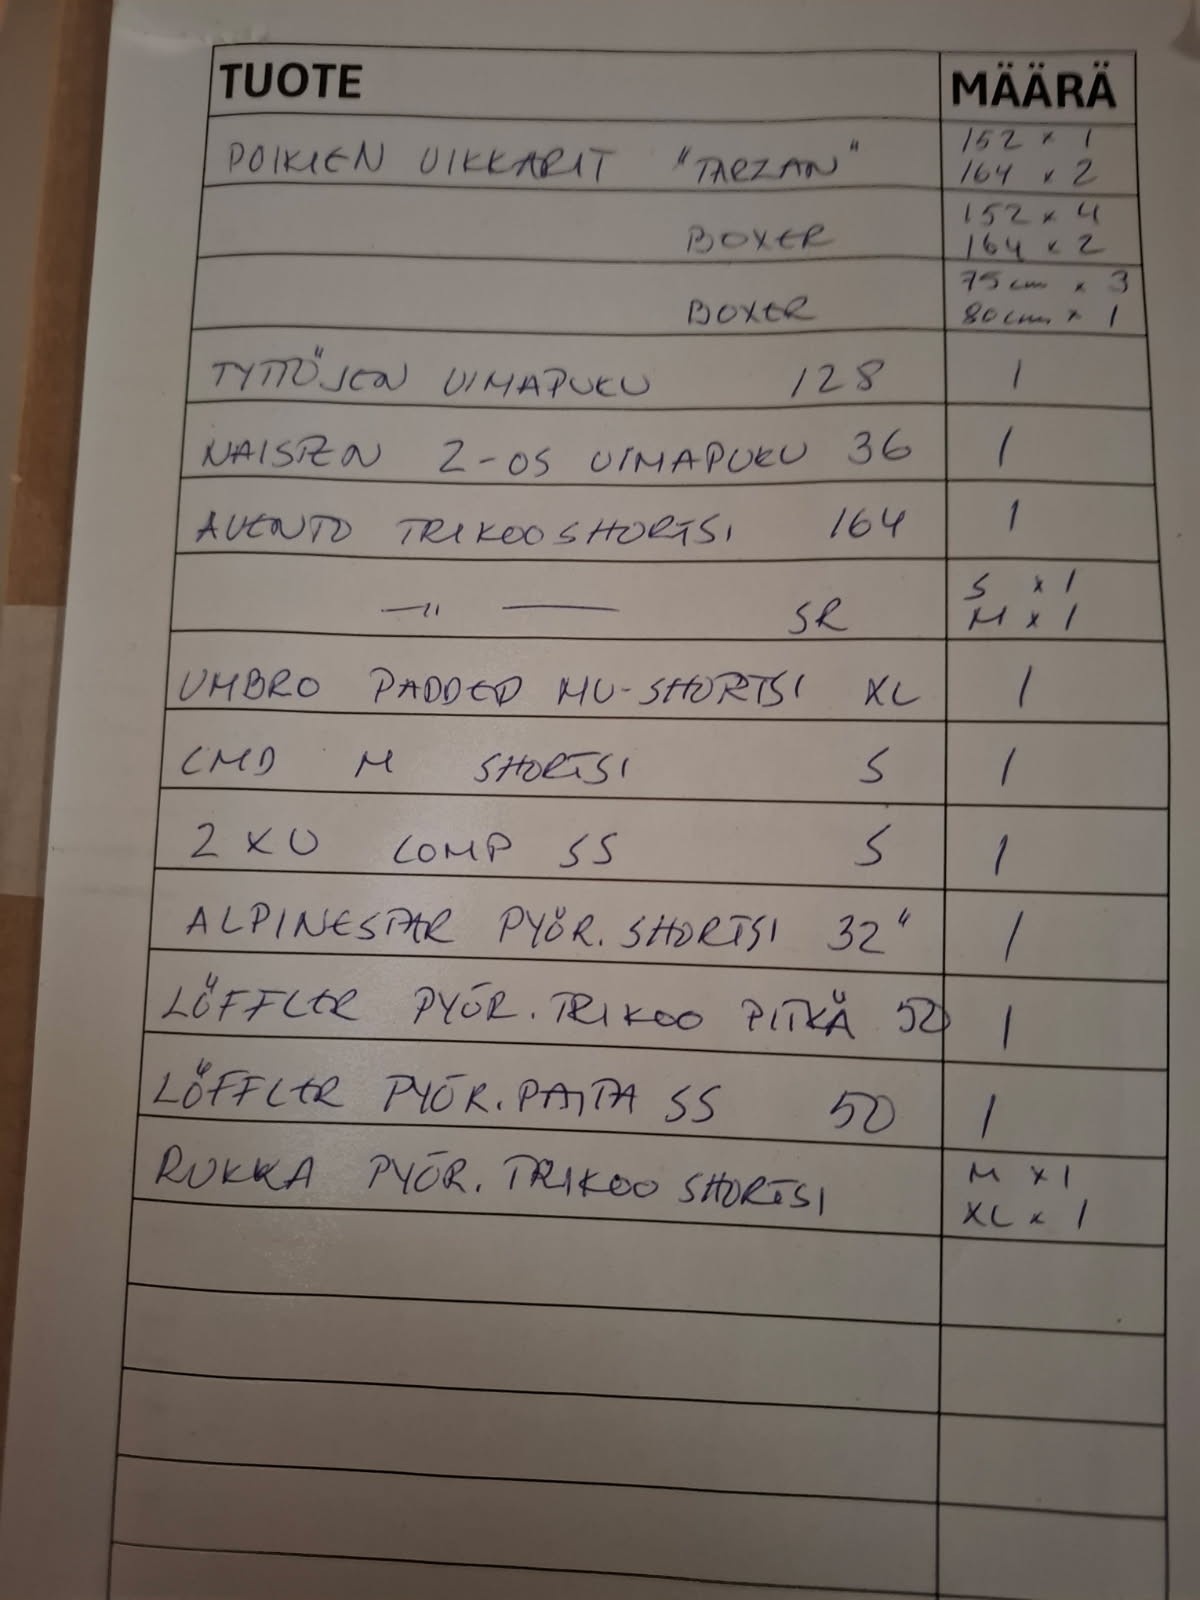 TUOTE MÄÄRÄ
POIKIEN UIKKARIT "TARZAN" 152 x 1
164 x 2
BOXER 152 x 4
164 x 2
BOXER 75 cm x 3
80 cm x 1
TYTTÖJEN UIMAPUKU 128 1
NAISTEN 2-OS UIMAPUKU 36 1
AVENTO TRIKOOSHORTSI 164 1
—"— SR S x 1
M x 1
UMBRO PADDED MV-SHORTSI XL 1
CMD M SHORTSI S 1
2 XU COMP SS S 1
ALPINESTAR PYÖR. SHORTSI 32" 1
LÖFFLER PYÖR. TRIKOO PITKÄ 50 1
LÖFFLER PYÖR. PAITA SS 50 1
RUKKA PYÖR. TRIKOO SHORTSI M x 1
XL x 1